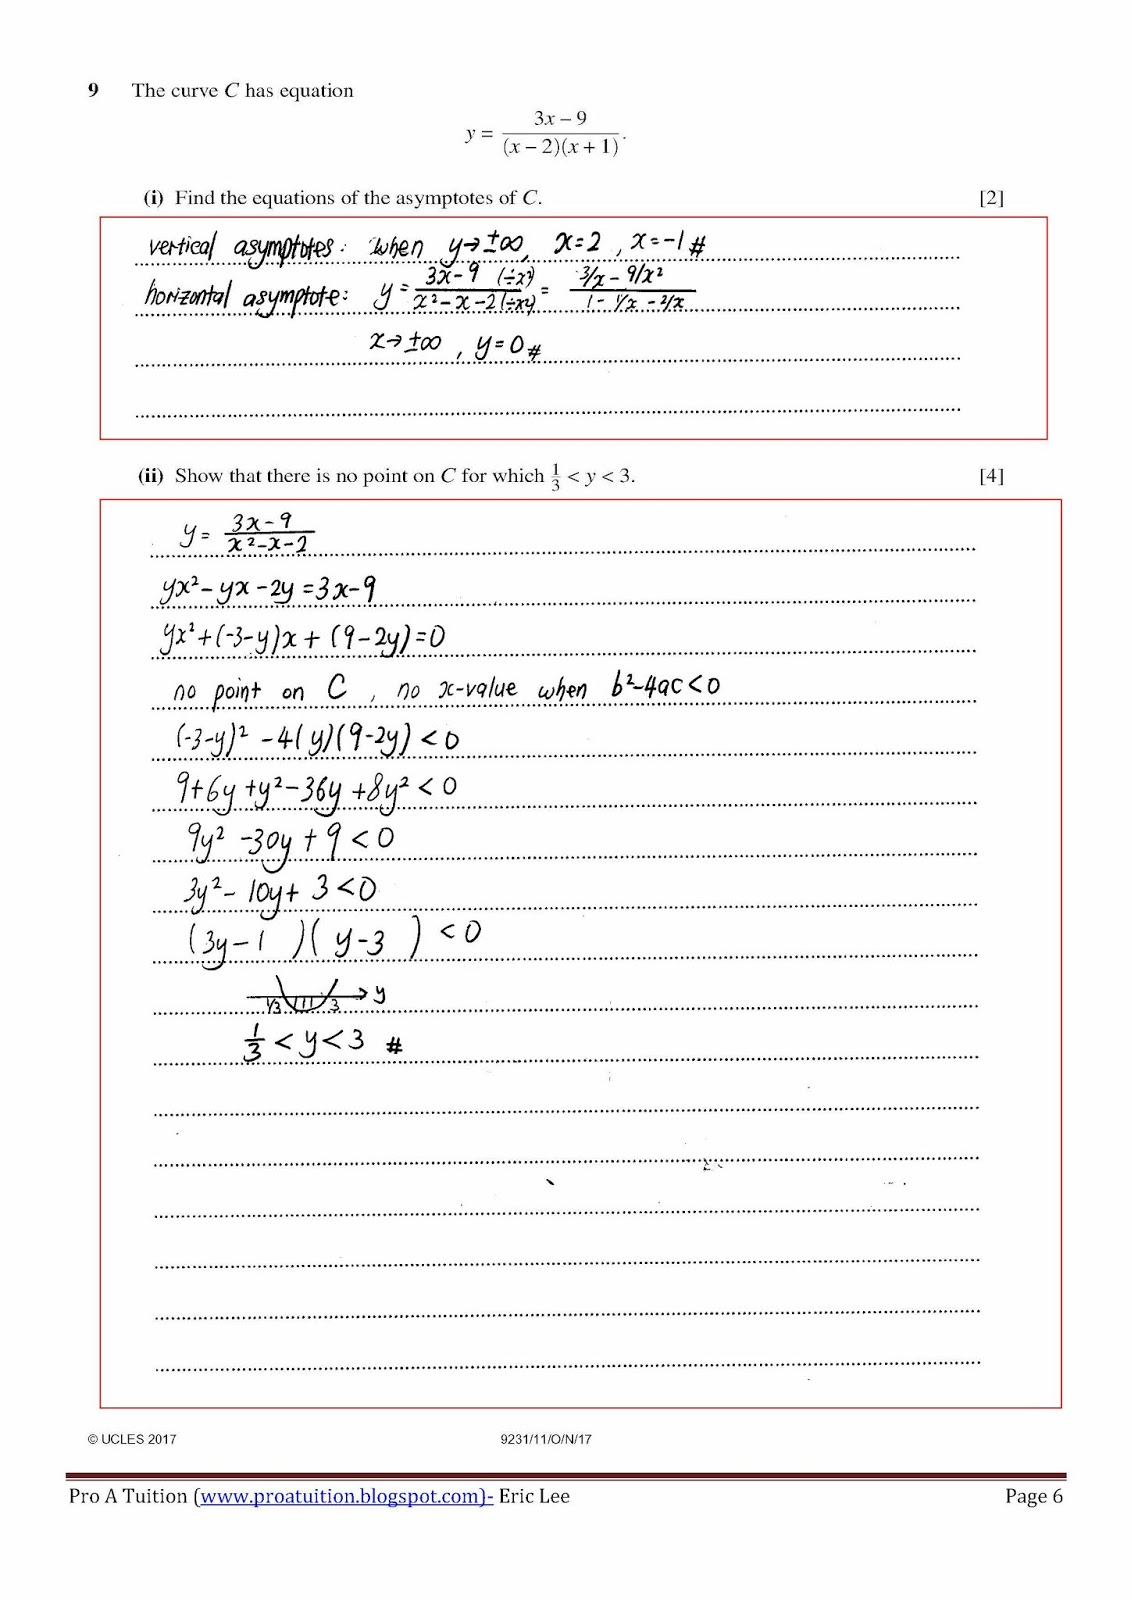 9 The curve C has equation
y = (3x – 9)/((x – 2)(x + 1)).
(i) Find the equations of the asymptotes of C. [2]
vertical asymptotes: when y→±∞, x=2 , x=-1 #
horizontal asymptote: y = (3x-9 (÷x²))/(x²-x-2 (÷x²)) = (3/x - 9/x²)/(1 - 1/x - 2/x
x→±∞ , y=0 #
(ii) Show that there is no point on C for which 1/3 < y < 3. [4]
y = (3x-9)/(x²-x-2)
yx² - yx - 2y = 3x-9
yx² + (-3-y)x + (9-2y) = 0
no point on C , no x-value when b²-4ac < 0
(-3-y)² - 4(y)(9-2y) < 0
9+6y+y²-36y+8y² < 0
9y² - 30y + 9 < 0
3y² - 10y + 3 < 0
(3y-1 )( y-3 ) < 0
1/3 3 y
1/3 < y < 3 #
© UCLES 2017 9231/11/O/N/17
Pro A Tuition (www.proatuition.blogspot.com)- Eric Lee Page 6